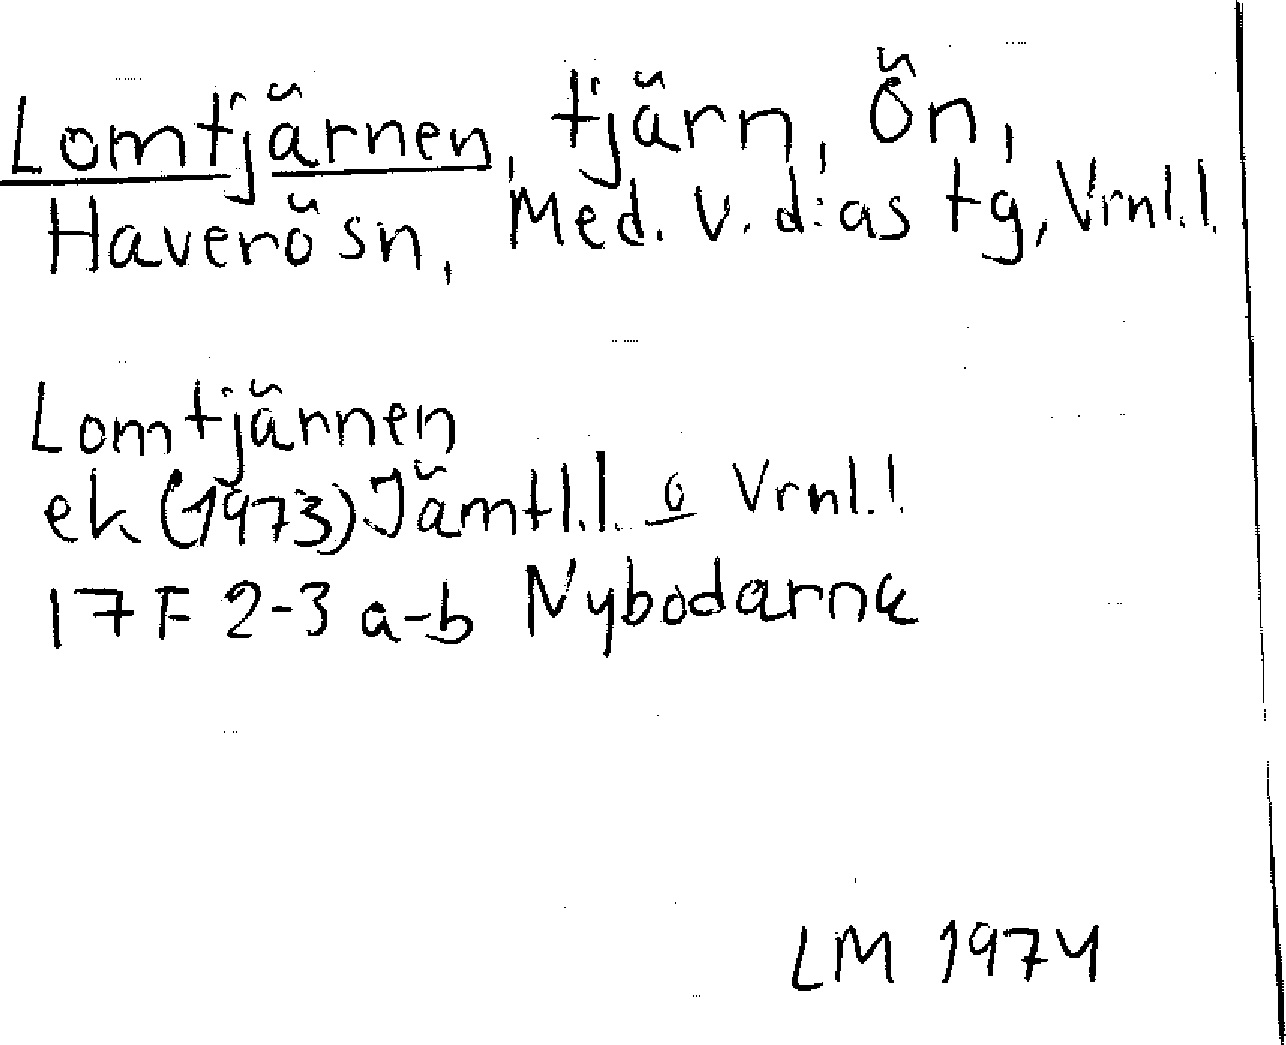 Lomtjärnen, tjärn, Ön,
Haverö sn, Med. v. d:as tg, Vrnl.l.
Lomtjärnen
ek (1973) Jämtl.l. o Vrnl.l
17 F 2-3 a-b Nybodarna
LM 1974